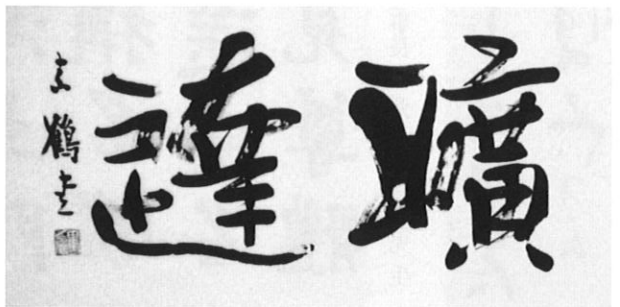 曠達
鶴書